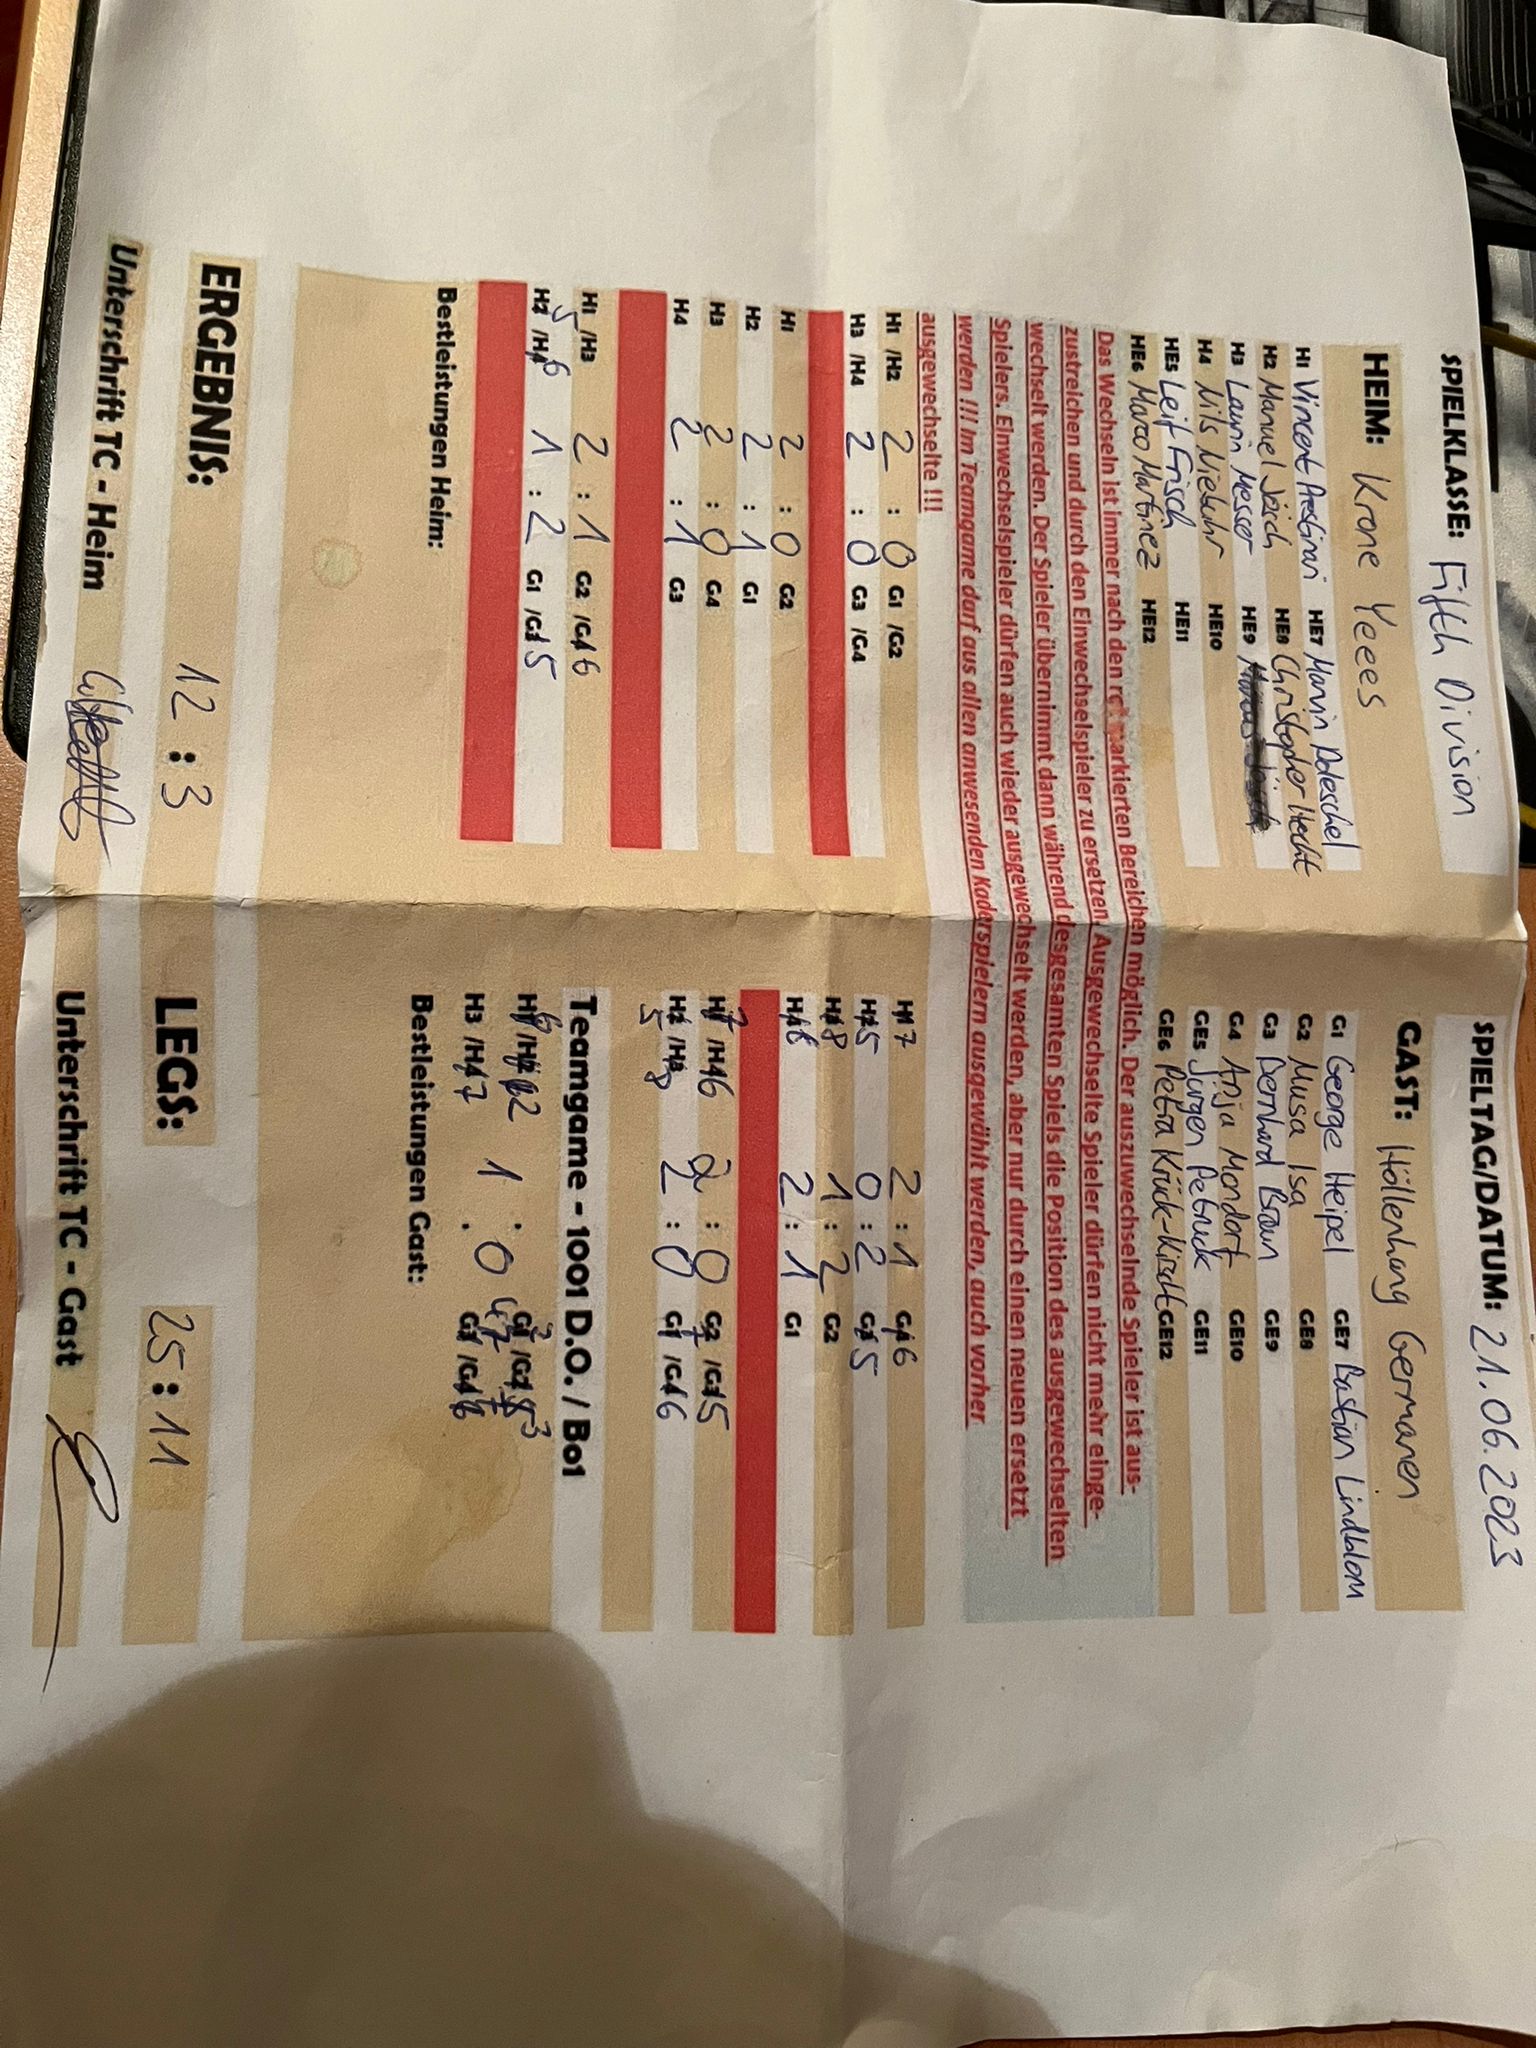 SPIELKLASSE: Fifth Division
SPIELTAG/DATUM: 21.06.2023
HEIM: Krone Yeees
GAST: Höllenhung Germanen
H1 Vincent HE7 Marvin Doleschel
H2 Manuel HE8 Christopher Hecht
H3 Laurin Messer HE9
H4 Nils Niebuhr HE10
HE5 Leif Frisch HE11
HE6 Marco Martinez HE12
G1 George Heipel GE7 Bastian Lindblom
G2 Musa Isa GE8
G3 Bernhard Braun GE9
G4 Anja Mondorf GE10
GE5 Jürgen Petruck GE11
GE6 Petra Krück-Kischt GE12
Das Wechseln ist immer nach den rot markierten Bereichen möglich. Der auszuwechselnde Spieler ist aus-
zustreichen und durch den Einwechselspieler zu ersetzen. Ausgewechselte Spieler dürfen nicht mehr einge-
wechselt werden. Der Spieler übernimmt dann während desgesamten Spiels die Position des ausgewechselten
Spielers. Einwechselspieler dürfen auch wieder ausgewechselt werden, aber nur durch einen neuen ersetzt
werden !!! Im Teamgame darf aus allen anwesenden Kaderspielern ausgewählt werden, auch vorher
ausgewechselte !!!
H1 /H2 2 : 0 G1 /G2
H3 /H4 2 : 0 G3 /G4
H1 2 : 0 G2
H2 2 : 1 G1
H3 2 : 0 G4
H4 2 : 1 G3
H1 /H3 2 : 1 G2 /G 6
H 5 /H 6 1 : 2 G1 /G 5
Bestleistungen Heim:
H 7 2 : 1 G 6
H 5 0 : 2 G 5
H 8 1 : 2 G2
H 6 2 : 1 G1
H 7 /H 6 2 : 0 G /G 5
H 5 /H 8 2 : 0 G /G 6
Teamgame - 1001 D.O. / Bo1
H3 /H 7 1 : 0
Bestleistungen Gast:
ERGEBNIS: 12 : 3
LEGS: 25 : 11
Unterschrift TC - Heim
Unterschrift TC - Gast